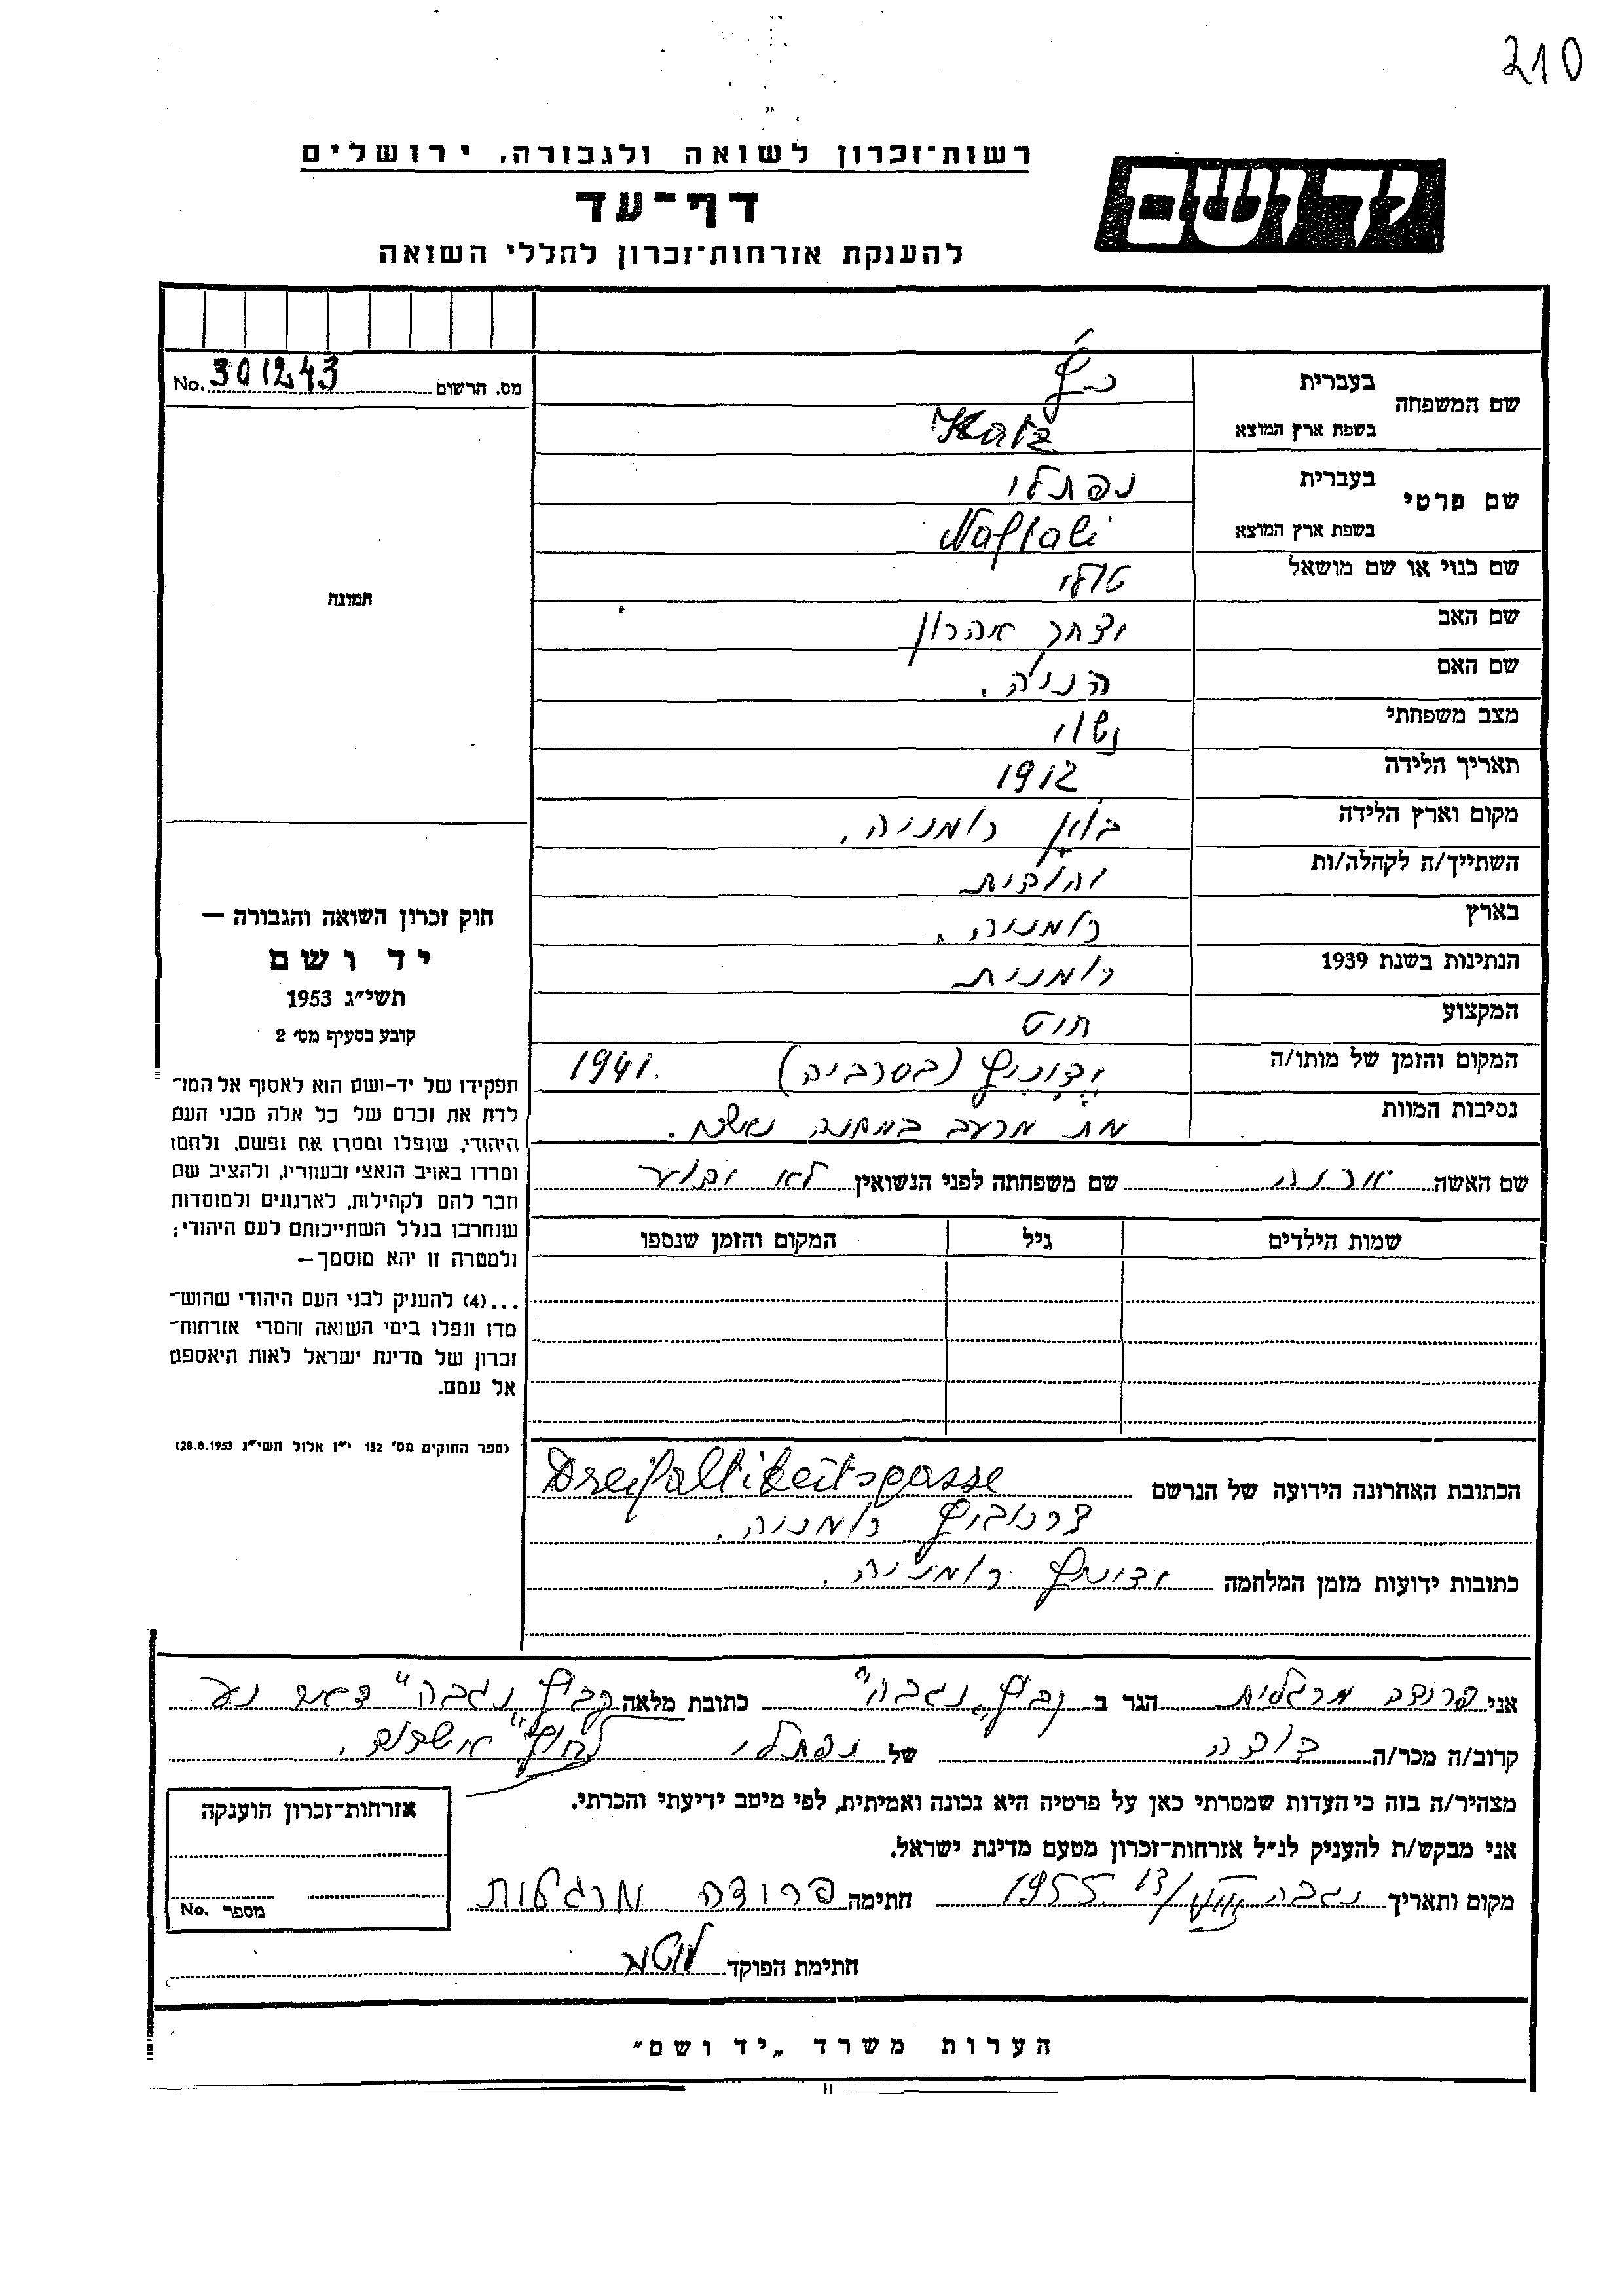 210
רשות־זכרון לשואה ולגבורה, ירושלים
דף־עד
להענקת אזרחות־זכרון לחללי השואה
יד ושם
מס. תרשום No. 301243
שם המשפחה בעברית כץ
בשפת ארץ המוצא Katz
שם פרטי בעברית נפתלי
בשפת ארץ המוצא Naftali
שם כנוי או שם מושאל טולי
שם האב יצחק אהרון
שם האם הניה.
מצב משפחתי נשוי
תאריך הלידה 1912
מקום וארץ הלידה רומניה.
השתייך/ה לקהלה/ות
בארץ רומניה.
הנתינות בשנת 1939 רומנית
המקצוע חיט
המקום והזמן של מותו/ה ידוניץ (בסרביה) 1941.
נסיבות המוות מת מרעב במחנה
שם האשה שם משפחתה לפני הנשואין לא ידוע
שמות הילדים גיל המקום והזמן שנספו
הכתובת האחרונה הידועה של הנרשם Dreifaltikeitsgasse
צרנוביץ רומניה.
כתובות ידועות מזמן המלחמה ידוניץ רומניה.
תמונה
חוק זכרון השואה והגבורה —
יד ושם
תשי״ג 1953
קובע בסעיף מס׳ 2
תפקידו של יד־ושם הוא לאסוף אל המו־
לדת את זכרם של כל אלה מבני העם
היהודי, שנפלו ומסרו את נפשם, נלחמו
ומרדו באויב הנאצי ובעוזריו, ולהציב שם
וזכר להם לקהילות, לארגונים ולמוסדות
שנחרבו בגלל השתייכותם לעם היהודי;
ולמטרה זו יהא מוסמך—
...(4) להעניק לבני העם היהודי שהוש־
מדו ונפלו בימי השואה והמרי אזרחות־
זכרון של מדינת ישראל לאות היאספם
אל עמם.
(ספר החוקים מס׳ 132 י״ז אלול תשי״ג 28.8.1953)
אני פרודה מרגלית הגר ב קבוץ „נגבה" כתובת מלאה קבוץ נגבה" דאר נע
קרוב/ה מכר/ה דודה של נפתלי לחוף" אשקלון.
מצהיר/ה בזה כי העדות שמסרתי כאן על פרטיה היא נכונה ואמיתית, לפי מיטב ידיעתי והכרתי.
אני מבקש/ת להעניק לנ״ל אזרחות־זכרון מטעם מדינת ישראל.
מקום ותאריך נגבה 13/VIII 1955 חתימה פרודה מרגלות
חתימת הפוקד
אזרחות־זכרון הוענקה
מספר No.
הערות משרד „יד ושם"